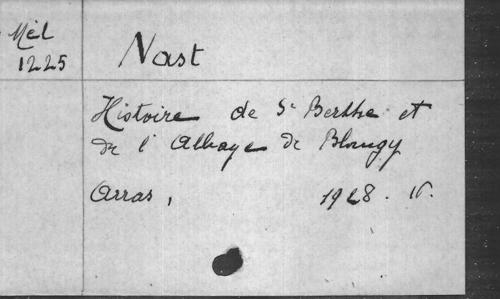 Mél
1225
Nast
Histoire de St Berthe et
de l'Abbaye de Blangy
Arras, 1928.